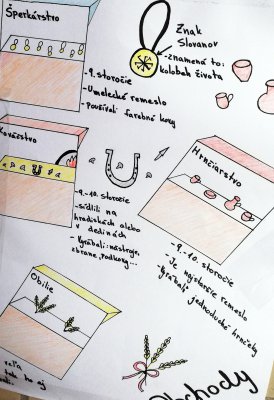 Šperkárstvo
Znak
Slovanov
-znamená to:
kolobeh života
-9. storočie
-Umelecké remeslo
-používali farebné kovy
Kováčstvo
-9.-10. storočie
-sídlili na
hradiskách alebo
v dedinách
-Vyrábali: nástroje,
zbrane, podkovy...
Hrnčiarstvo
-9.-10. storočie
-Je najstaršie remeslo
-Vyrábali jednoduché hrnčeky
Obilie
Obchody